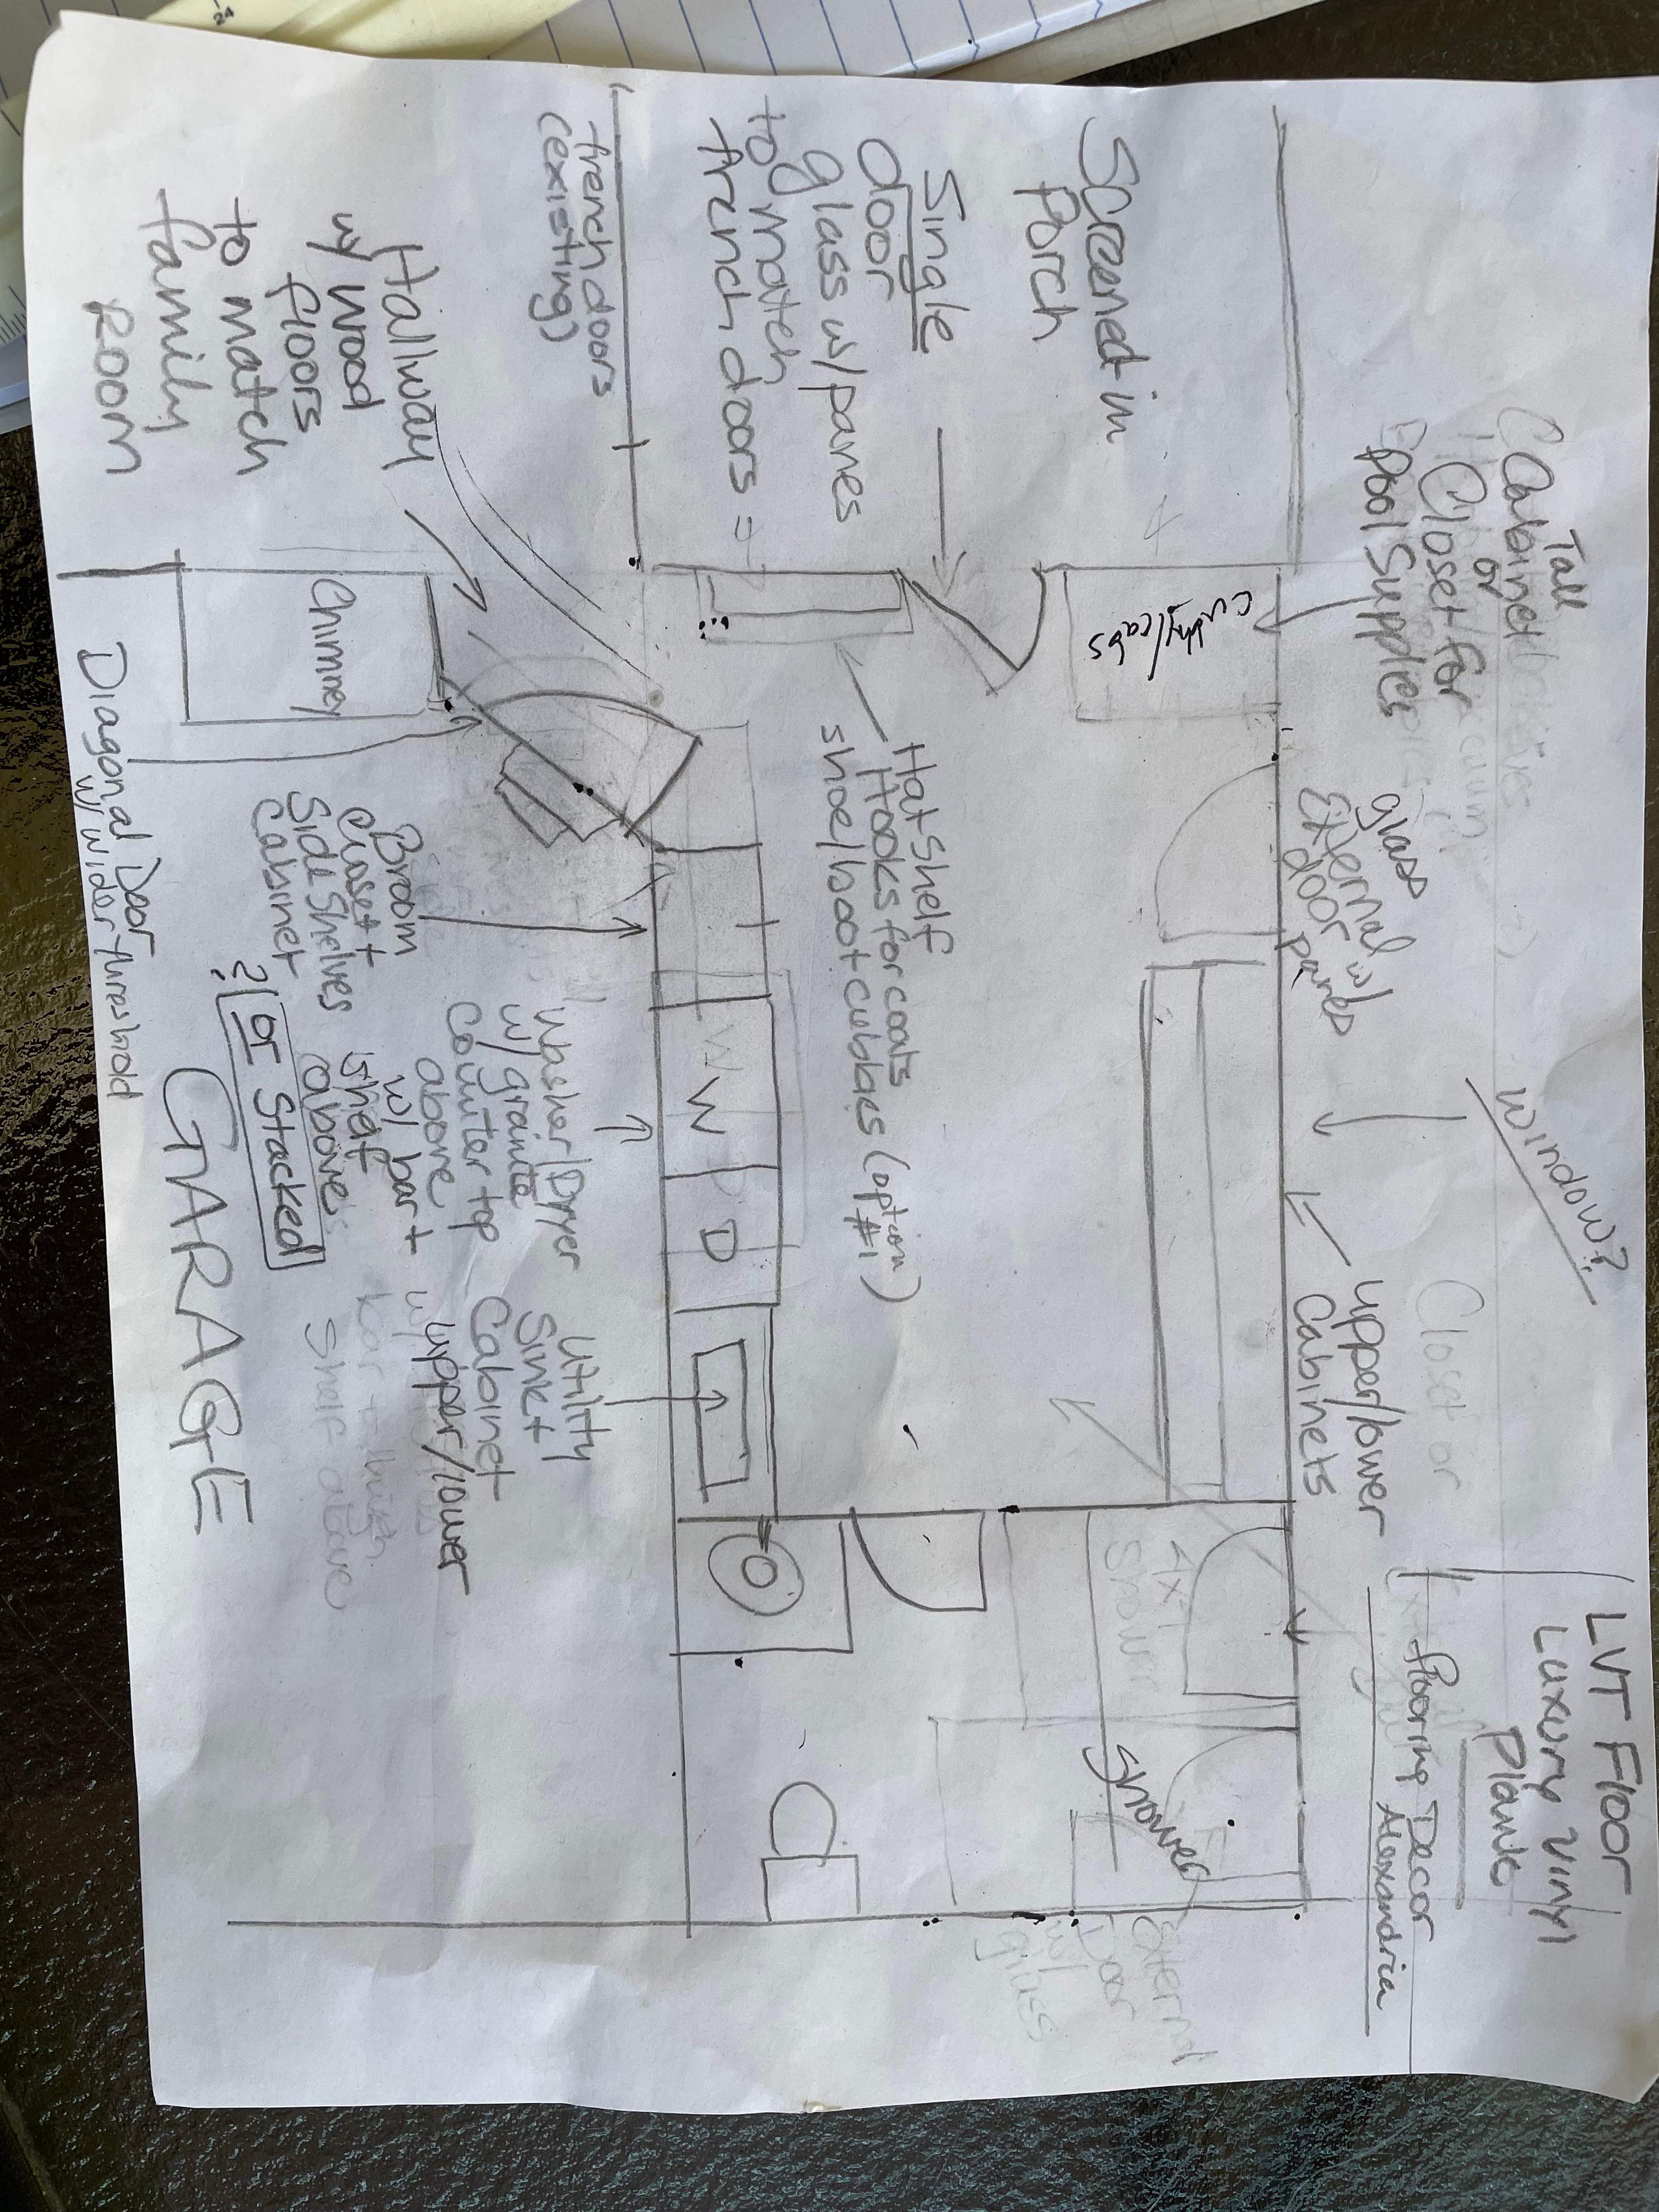 24
Tall
Cabinet
or
Closet for
Pool Supplies
glass
External w/
door panes
window?
Closet or
upper/lower
Cabinets
LVT Floor
Luxury Vinyl
Planks
Flooring Decor
Alexandria
Screened in
Porch
Single
door
glass w/panes
to match
french doors =
french doors
(existing)
Hallway
w/ wood
floors
to match
family
Room
cubby/cabs
Hat shelf
Hooks for coats
shoe/boot cubbies (option
#1)
Chimney
Diagonal Door
w/ wider threshold
Broom
closet +
Side Shelves
Cabinet
W
W
D
D
Washer/Dryer
w/ granite
Counter top
above
w/ bar +
shelf
above
?
or Stacked
Utility
Sink
Cabinet
w/ upper/lower
shelf above
GARAGE
4x
Shower
Shower
External
Door
w/
glass